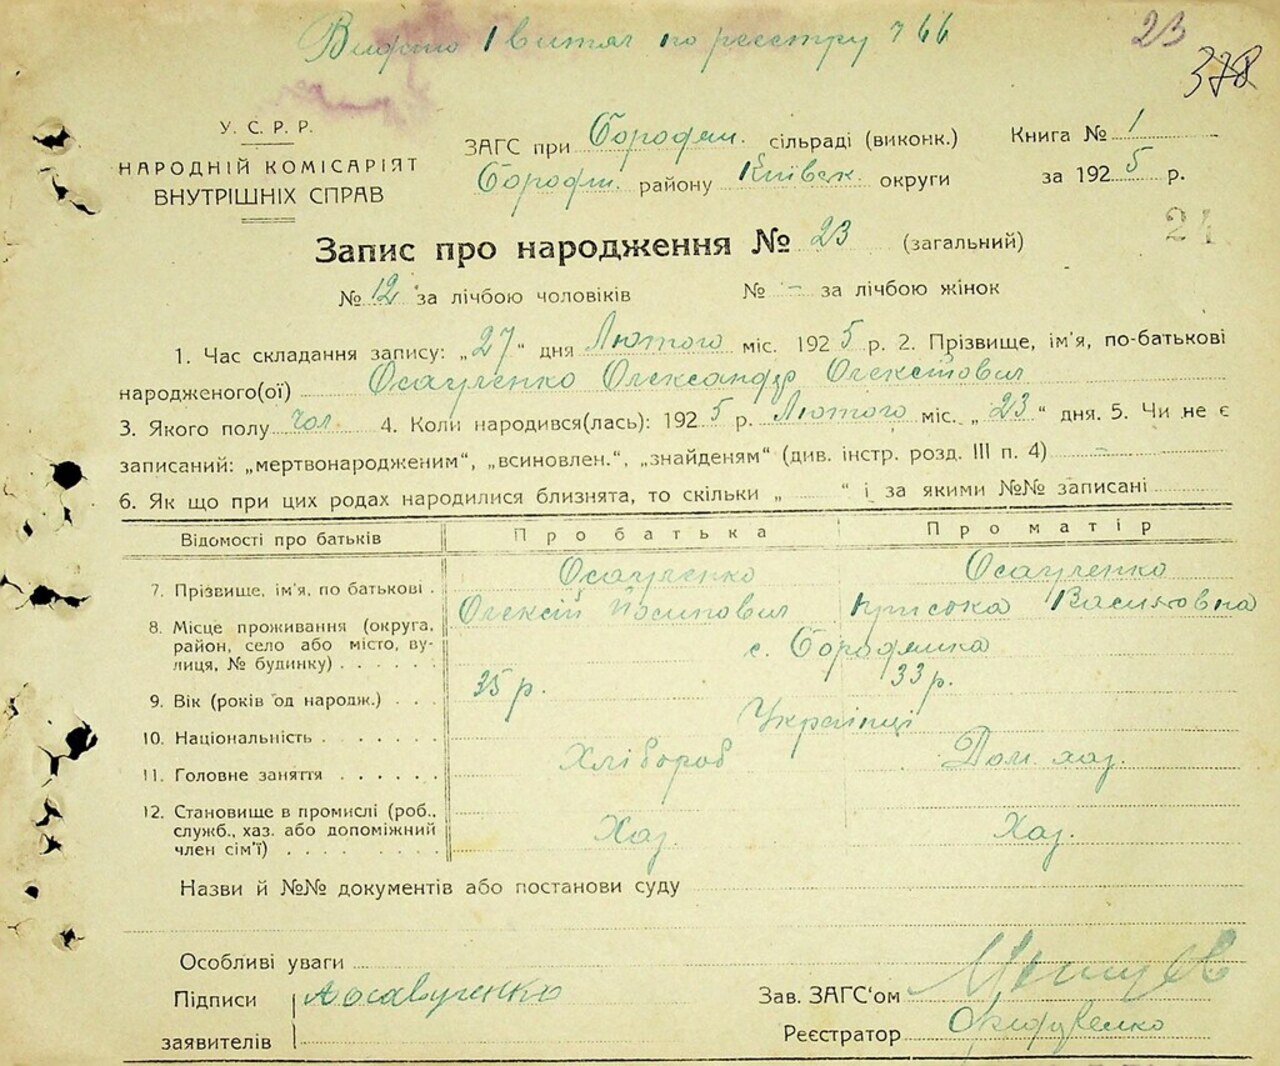 Видано 1 витяг по реєстру 766
23
378
У. С. Р. Р.
НАРОДНІЙ КОМІСАРІЯТ
ВНУТРІШНІХ СПРАВ
ЗАГС при Бородян. сільраді (виконк.)
Бородян. району Київськ. округи
Книга № 1
за 1925 р.
24
Запис про народження № 23 (загальний)
№ 12 за лічбою чоловіків № - за лічбою жінок
1. Час складання запису: „27“ дня Лютого міс. 1925 р. 2. Прізвище, ім'я, по-батькові
народженого(ої) Осауленко Олександр Олексієвич
3. Якого полу чол. 4. Коли народився(лась): 1925 р. Лютого міс. „23“ дня. 5. Чи не є
записаний: „мертвонародженим“, „всиновлен.“, „знайденям“ (див. інстр. розд. III п. 4) -
6. Як що при цих родах народилися близнята, то скільки „ “ і за якими №№ записані
Відомості про батьків Про батька Про матір
7. Прізвище, ім'я, по батькові . Осауленко Осауленко
Олексій Йосипович Приська Василовна
8. Місце проживання (округа,
район, село або місто, ву-
лиця, № будинку) . . . . . . с. Бородянка
9. Вік (років од народж.) . . . 35 р. 33 р.
10. Національність . . . . . . . Українці
11. Головне заняття . . . . . . Хлібороб Дом. хаз.
12. Становище в промислі (роб.,
служб., хаз. або допоміжний
член сім'ї) . . . . . . . . . Хаз. Хаз.
Назви й №№ документів або постанови суду
Особливі уваги
Підписи
заявителів
А осавуленко
Зав. ЗАГС'ом
Реєстратор